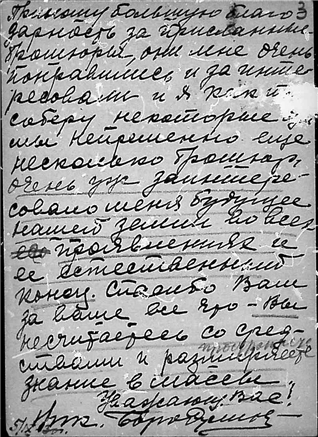 Приношу большую благо 3
дарность за присланные
брошюры, они мне очень
понравились и за инте
ресовали и я как то
соберу некоторые
мы непременно еще
несколько брошюр,
очень уж заинтере-
совало меня будущее
нашей земли во всех
его проявлениях и
ее естественный
конец. Спасибо Вам
за ваше все это - Вы
несчитаетесь со сред-
ствами и разширяете
знание в массы.
Уважающ. Вас